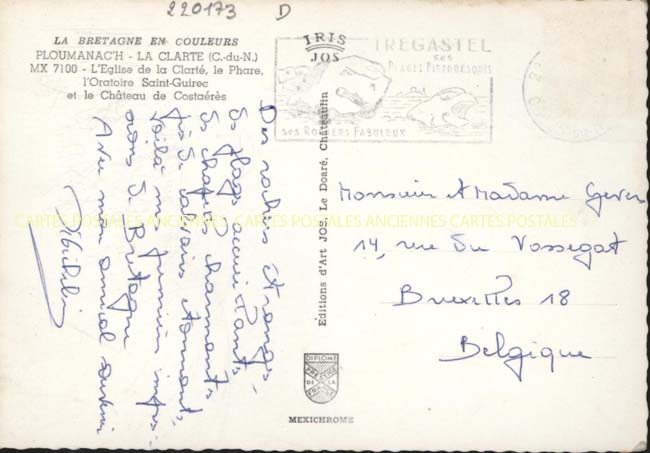 220173 D
LA BRETAGNE EN COULEURS
PLOUMANAC'H - LA CLARTE (C.-du-N.)
MX 7100 - L'Eglise de la Clarté, le Phare,
l'Oratoire Saint-Guirec
et le Château de Costaérès
IRIS
JOS
TREGASTEL
ses
PLAGES PITTORESQUES
ses ROCHERS FABULEUX
Des roches étranges,
des plages
des chapelles charmantes
des calvaires étonnants,
voilà mes premières impres-
sions de Bretagne
Avec mon amical souvenir
Editions d'Art JOS, Le Doaré, Châteaulin
Monsieur et Madame
14, rue du Vossegat
Bruxelles 18
Belgique
DIPLOME
PRESTIGE
DE LA
FRANCE
MEXICHROME
CARTES POSTALES ANCIENNES CARTES POSTALES